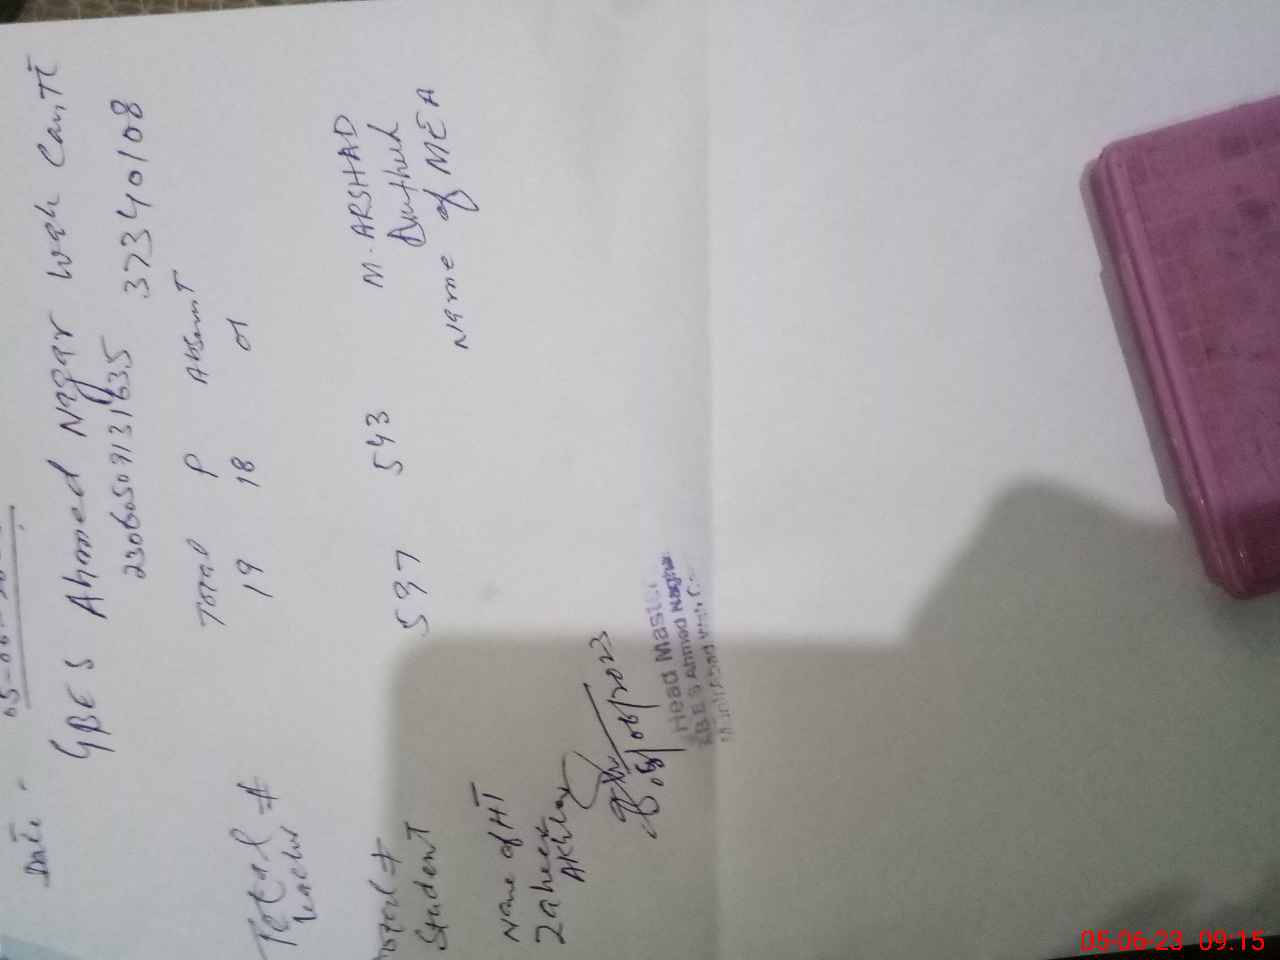 Date - 05-06-20
GBES Ahmed Nagar Wah Cantt
23060509131635 37340108
Total P Absent
Total # Teacher 19 18 01
Total # Student 597 543
M. ARSHAD
Name of MEA
Name of HT
Zaheer
Akhtar
05/06/2023
Head Master
GBES Ahmed Nagar
05-06-23 09:15